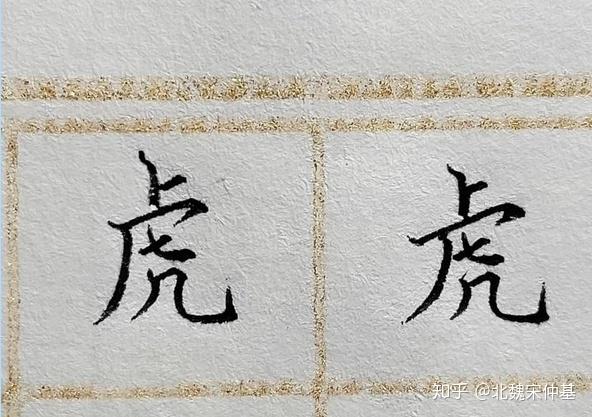 虎 虎
知乎 @北魏宋仲基